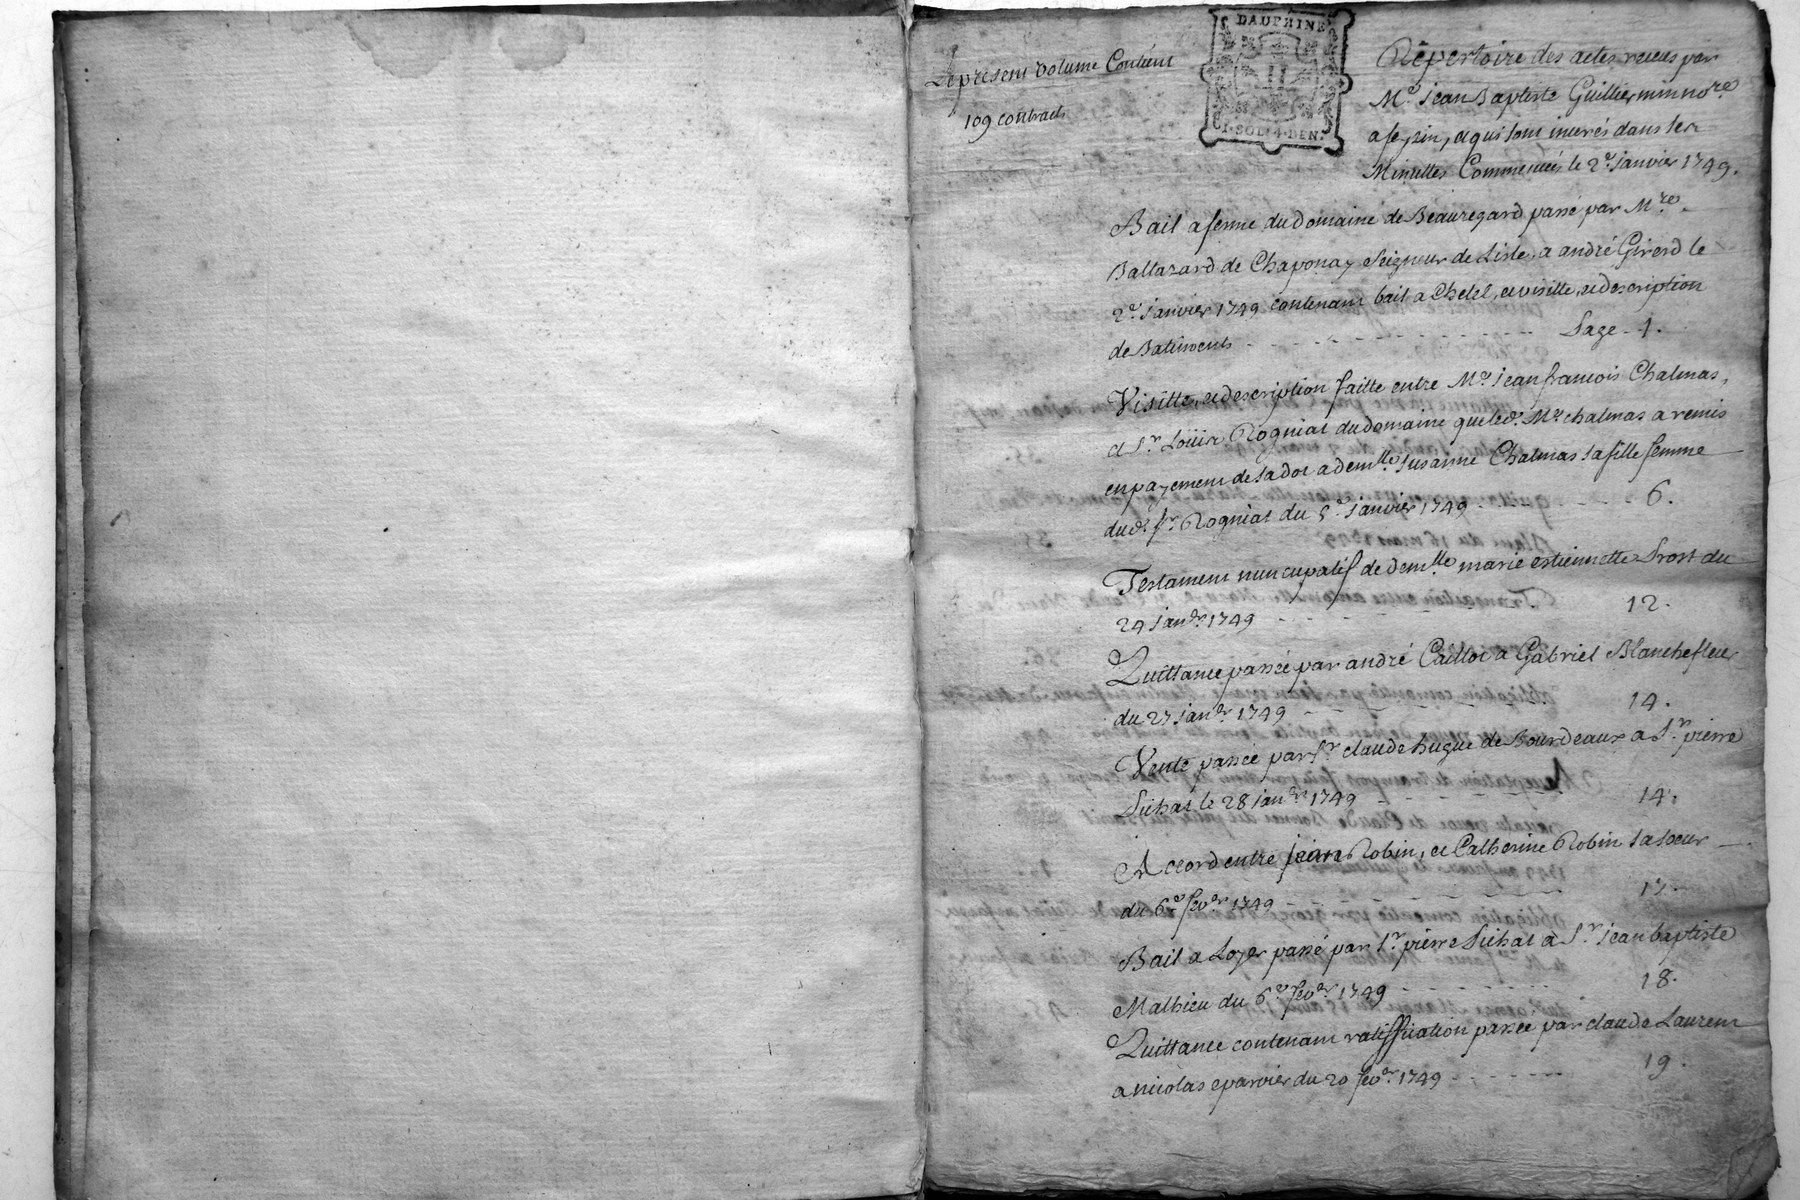 Le present volume Contient
109 contracts
DAUPHINE
1·SOL·4·DEN·
Repertoire des actes receus par
Me Jean Baptiste Guilliermin nore
a seyzin, et qui sont inserés dans les
Minuttes Commencées le 2e. Janvier 1749.
Bail a ferme du domaine de Beauregard passé par Mre.
Baltazard de Chaponay Seigneur de Lisle, a andré Girerd le
2e. Janvier 1749 contenant bail a Chetel, et visitte, et description
de Batiments - - - - - - - - - - Page - 1.
Visitte, et description faitte entre Me. Jean francois Chalmas,
et Sr. Loüis Rogniat du domaine que led. Me. chalmas a remis
en payement de la dot a demlle Susanne Chalmas sa fille femme
dud. Sr. Rogniat du 5e. Janvier 1749 - - - - - 6.
Testament nuncupatif de demlle marie estiennette Prost du
24 Janvr. 1749 - - - - - - - 12.
Quittance passée par andré Caillot a Gabriel Blanchefleur
du 27 Janvr 1749 - - - - - - - 14.
Vente passée par Sr. claude hugue de Bourdeaux a Sr. pierre
Pichat le 28 Janvr. 1749 - - - - - - 14.
Accord entre jean Robin, et Catherine Robin sa soeur
du 6e fevr. 1749 - - - - - - - 17.
Bail a Loyer passé par Sr. pierre Pichat a Sr. Jean baptiste
Mathieu du 6e. fevr. 1749 - - - - - - - 18.
Quittance contenant ratiffication passée par claude Laurent
a nicolas eparvier du 20 fevr. 1749 - - - - - - 19.